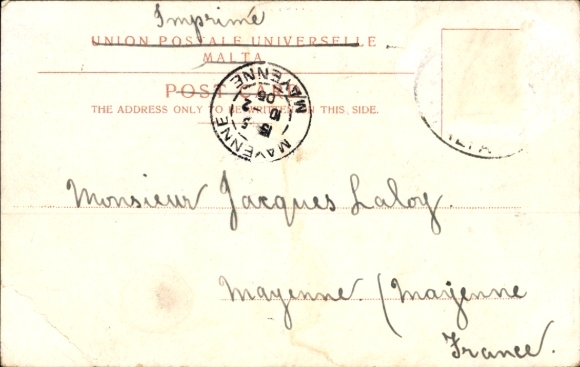 Imprimé
UNION POSTALE UNIVERSELLE
MALTA
POST CARD
THE ADDRESS ONLY TO BE WRITTEN ON THIS SIDE.
MAYENNE
MAYENNE
Monsieur Jacques Laloy.
Mayenne. (Mayenne
France.